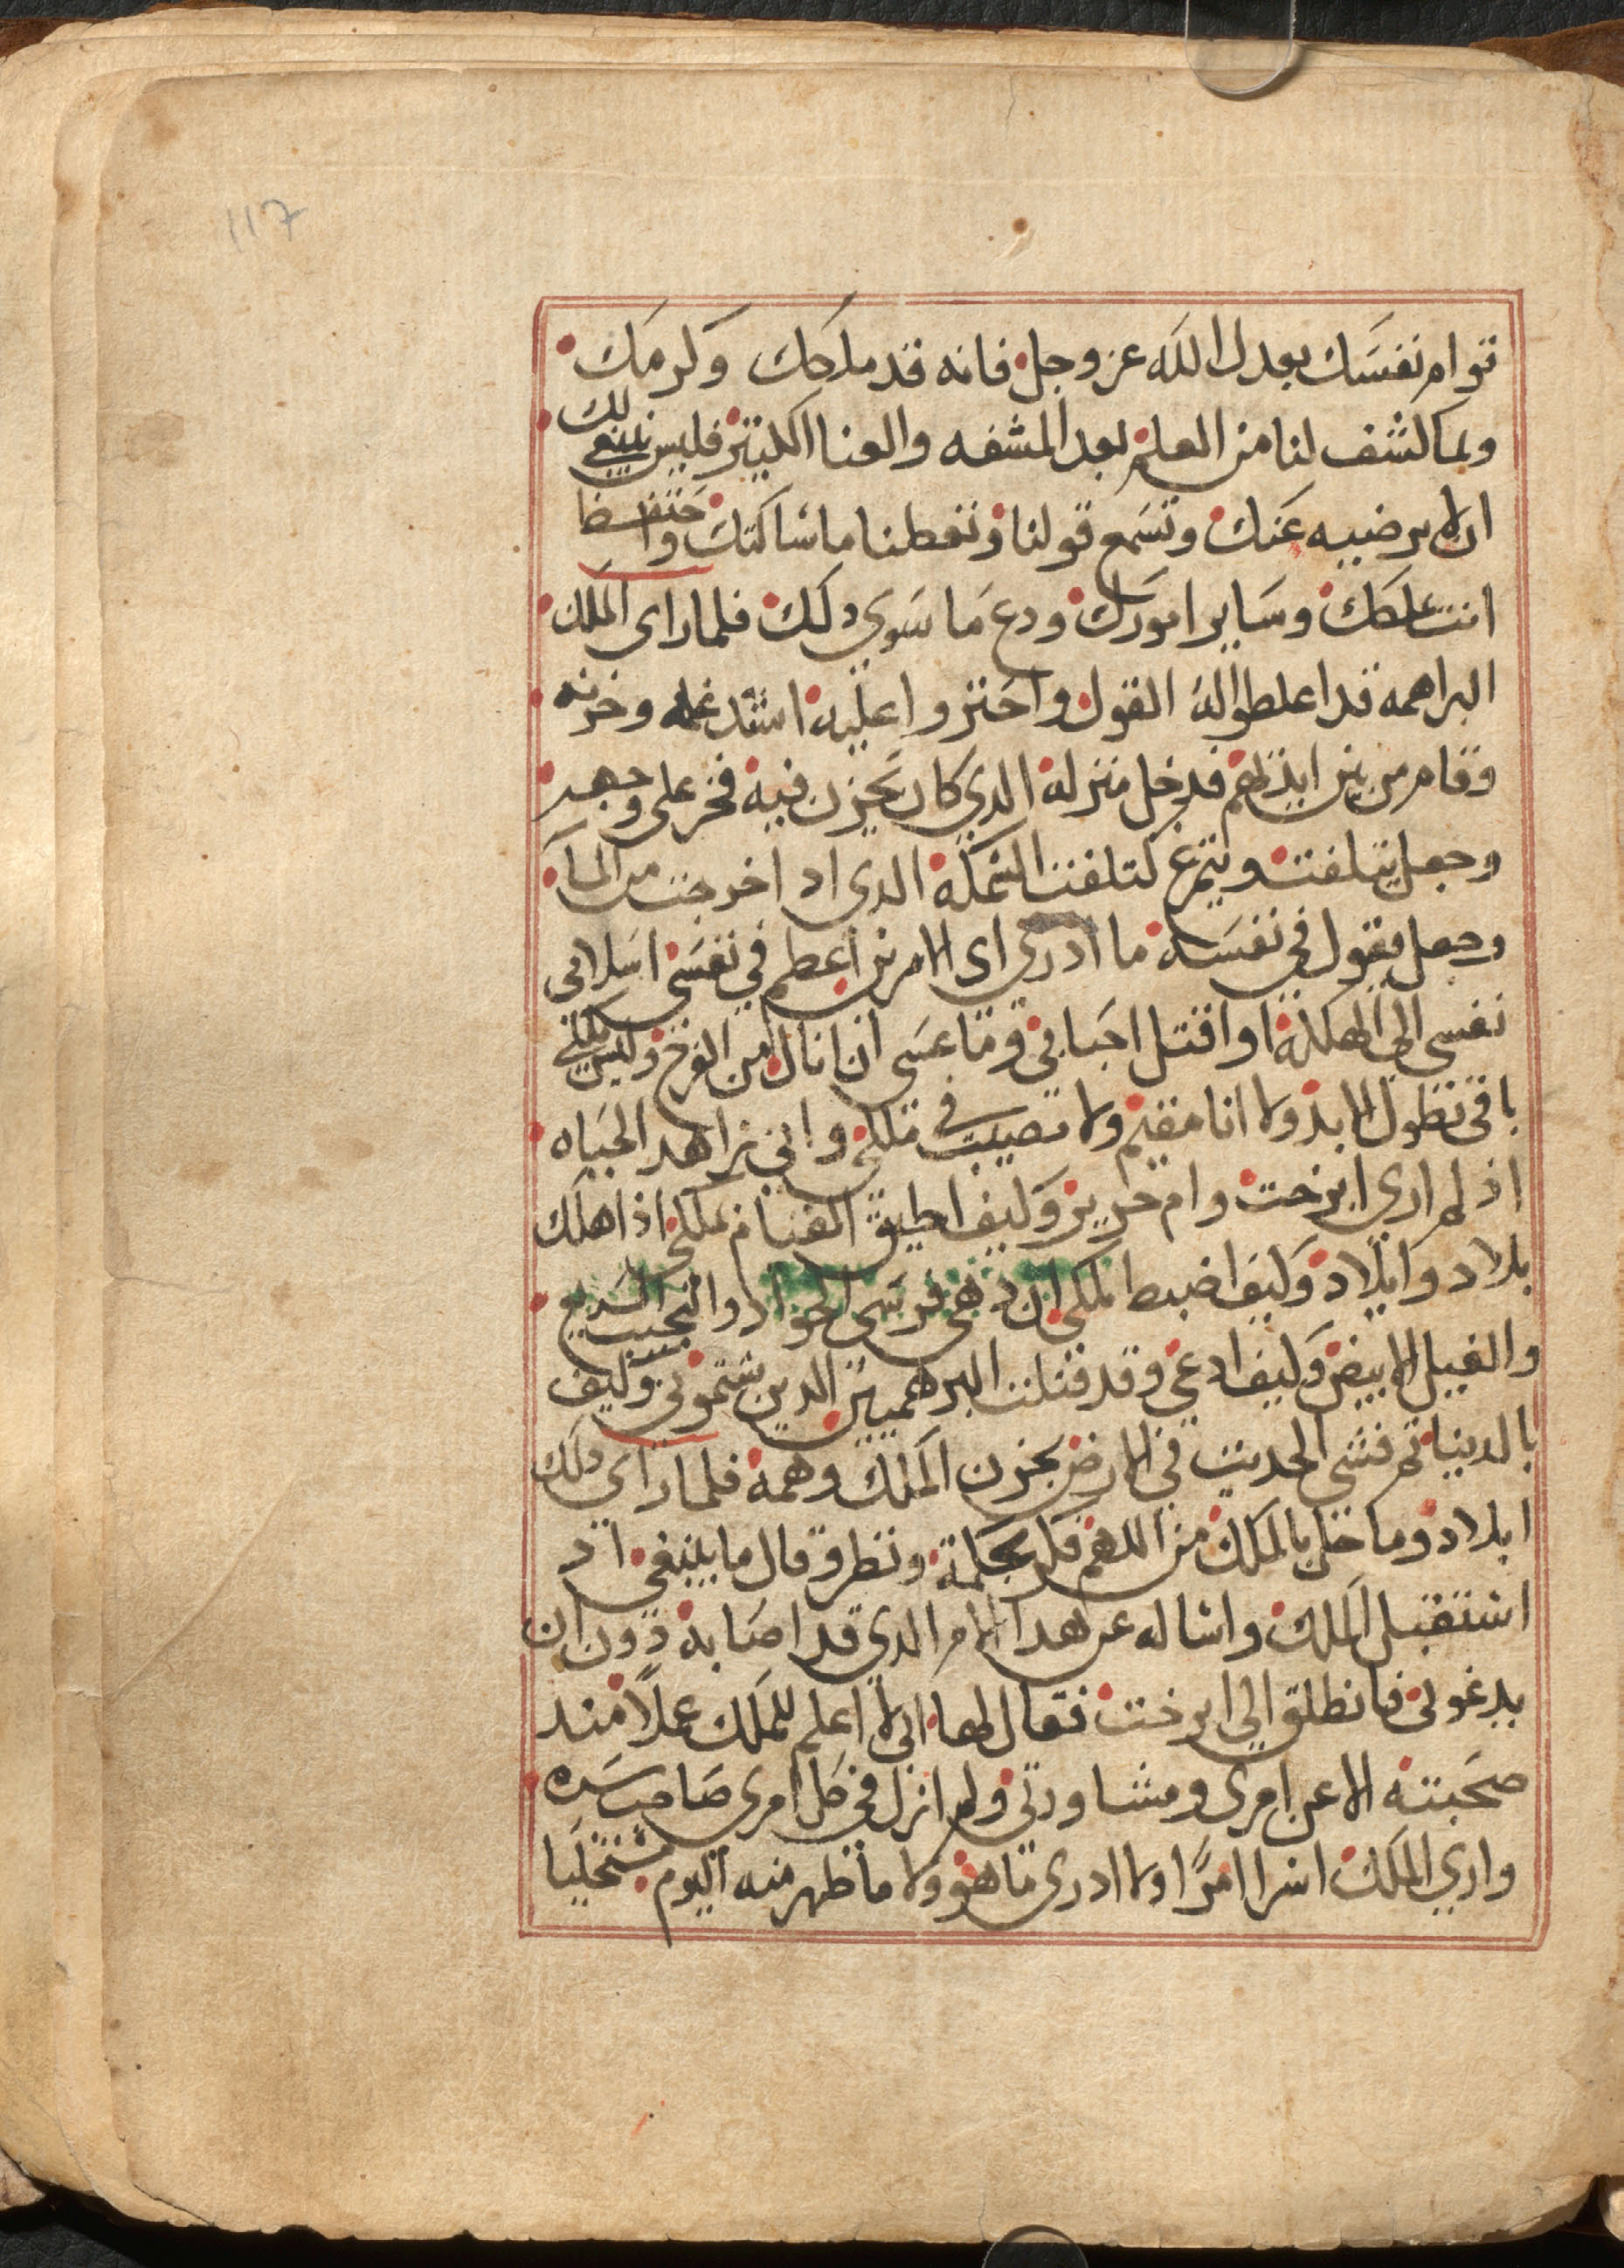 117
توام نفسك بعدل الله عز وجل فانه قد ملاحك وكرمك
ولما كشف لنا من العلم بعد المشقه والعنا الكثير فليس ينبغي لك
ان لا ترضيه عنك وتسمع قولنا وتعطنا ما شاكتك واحتفظ
انت ملكك وساير امورك ودع ما سوي دلك فلما راي الملك
البراهمه قد اعلطوا له القول واحتزوا عليه اشتد غمه وحزنه
وقام من بين ايديهم فدخل منزله الدي كان يحزن فيه فخر علي وجهه
وجعل يتلفت ويتمرغ كتلفت السمكه الدي اد اخرجت من الما
وجعل يقول في نفسه ما ادري اي الامرين اعطم في نفسي اسلامي
نفسي الي الهلكه او اقتل احبابي وما عسي ان انال من الفرح وليس ملكي
باقي تطول الابد ولا انا مقيم ولا مصيب في ملكي واني زاهد الحياه
اذ لم اري ايرخت وام حرير وكيف اطيق القيام بملكي اذا هلك
بلاد وايلاد وكيف اضبط ملكي ان دهي فرسي الجواد والنجيب السريع
والفيل الابيض وكيف ادعي وقد قتلت البرهميين الدين شتموني وكيف
بالدينا ثم فشي الحديت في الارض بحزن الملك وهمه فلما راي دلك
ايلاد وما حل بالملك من الهم فكر بحكمة ونطر وقال ما ينبغي اد
استقبل الملك واساله عن هدا الامر الدي قد اصابه دون ان
يدعوني فانطلق الي ايرخت فقال لها اني لا اعلم للملك عملا مند
صحبته الا عن امري ومشاورتي ولم ازل في كل امري صاحب سره
واري الملك اسر امرا ولا ادري ما هو ولا ما ظهر منه اليوم مستخليا